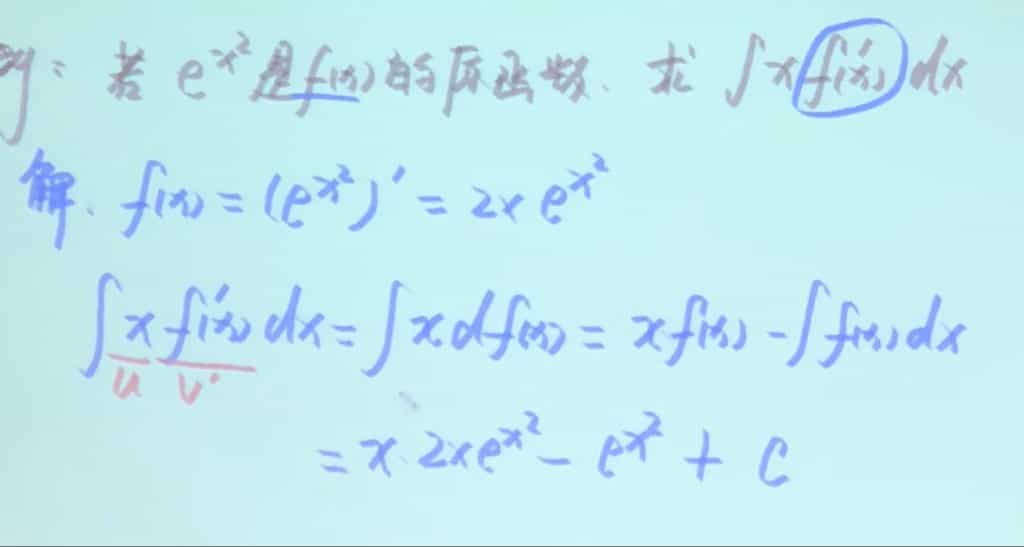 例：若 e^{x^2} 是 f(x) 的原函数、求 ∫ x f'(x) dx
解、f(x) = (e^{x^2})' = 2x e^{x^2}
∫ x f'(x) dx = ∫ x d f(x) = x f(x) - ∫ f(x) dx
u v'
= x · 2x e^{x^2} - e^{x^2} + C